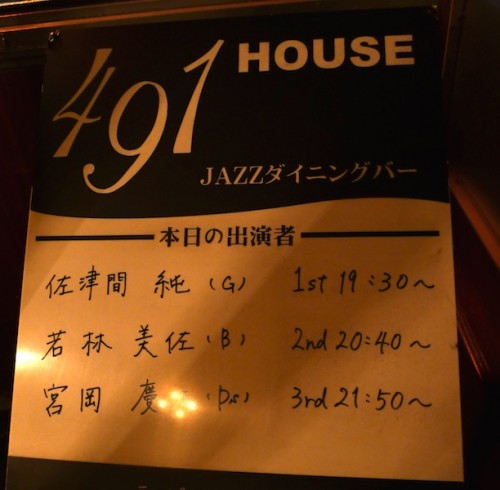 491 HOUSE
JAZZダイニングバー
本日の出演者
佐津間 純(G) 1st 19:30~
若林 美佐(B) 2nd 20:40~
宮岡 慶 (Ds) 3rd 21:50~